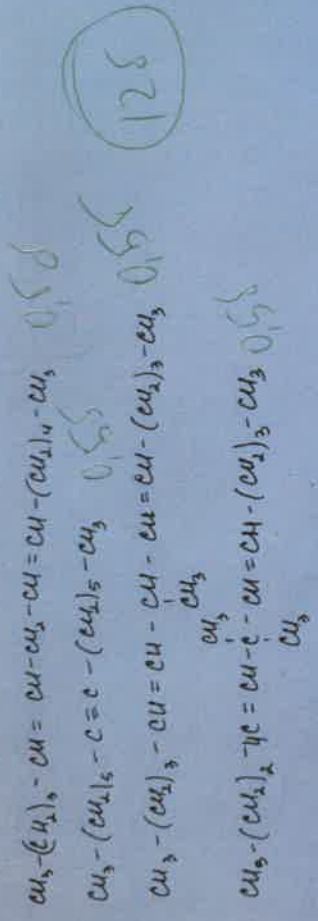 CH₃-(CH₂)₃-CH=CH-CH₂-CH=CH-(CH₂)₄-CH₃ 0,5б
CH₃-(CH₂)₅-C≡C-(CH₂)₅-CH₃ 0,5б
CH₃-(CH₂)₃-CH=CH-CH-CH=CH-(CH₂)₃-CH₃ 0,5б
CH₃
CH₃
CH₃-(CH₂)₂-HC=CH-C-CH=CH-(CH₂)₃-CH₃ 0,5б
CH₃
12б